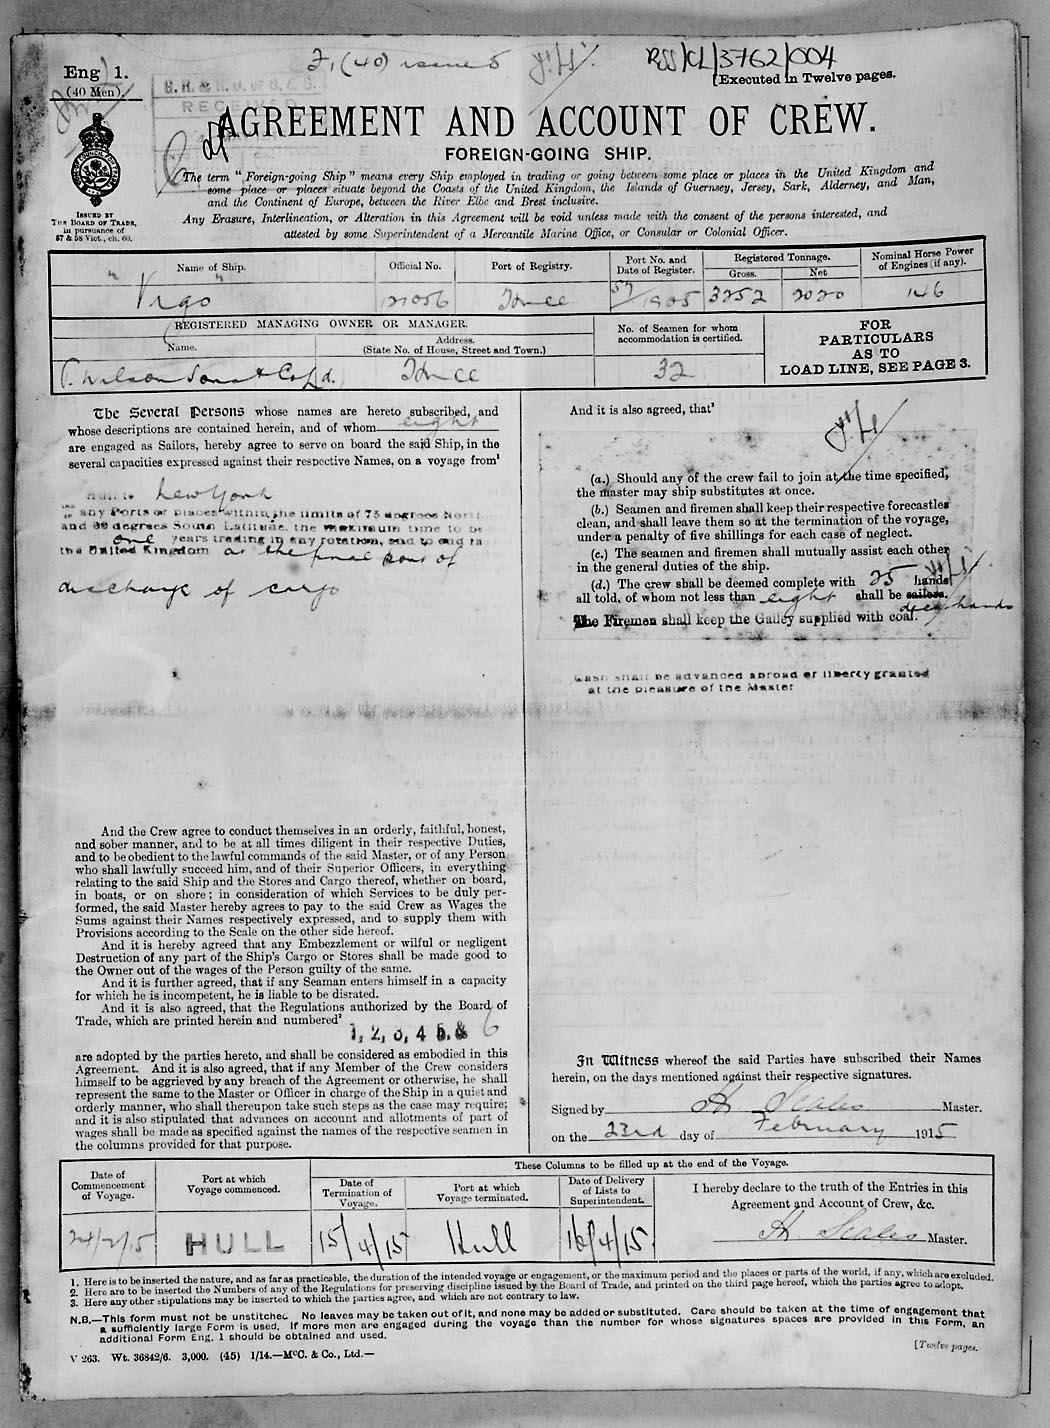 Eng 1.
(40 Men).
RSS/CL/3762/004
[Executed in Twelve pages.
RECEIVED
AGREEMENT AND ACCOUNT OF CREW.
FOREIGN-GOING SHIP.
ISSUED BY
THE BOARD OF TRADE,
in pursuance of
57 & 58 Vict., ch. 60.
The term "Foreign-going Ship" means every Ship employed in trading or going between some place or places in the United Kingdom and
some place or places situate beyond the Coasts of the United Kingdom, the Islands of Guernsey, Jersey, Sark, Alderney, and Man,
and the Continent of Europe, between the River Elbe and Brest inclusive.
Any Erasure, Interlineation, or Alteration in this Agreement will be void unless made with the consent of the persons interested, and
attested by some Superintendent of a Mercantile Marine Office, or Consular or Colonial Officer.
Name of Ship. Official No. Port of Registry. Port No. and Date of Register. Registered Tonnage. Gross. Net Nominal Horse Power of Engines (if any).
"Virgo" 121056 57/1905 3252 2020 146
REGISTERED MANAGING OWNER OR MANAGER.
Name. Address. (State No. of House, Street and Town.)
No. of Seamen for whom accommodation is certified.
FOR PARTICULARS AS TO LOAD LINE, SEE PAGE 3.
T. Wilson Sons & Co Ld. 32
The Several Persons whose names are hereto subscribed, and
whose descriptions are contained herein, and of whom eight
are engaged as Sailors, hereby agree to serve on board the said Ship, in the
several capacities expressed against their respective Names, on a voyage from¹
Hull to New York
any Ports or places within the limits of 75 degrees North
and 60 degrees South Latitude, the maximum time to be
one years trading in any rotation, and to end in
the United Kingdom at the final port of
discharge of cargo
And the Crew agree to conduct themselves in an orderly, faithful, honest,
and sober manner, and to be at all times diligent in their respective Duties,
and to be obedient to the lawful commands of the said Master, or of any Person
who shall lawfully succeed him, and of their Superior Officers, in everything
relating to the said Ship and the Stores and Cargo thereof, whether on board,
in boats, or on shore; in consideration of which Services to be duly per-
formed, the said Master hereby agrees to pay to the said Crew as Wages the
Sums against their Names respectively expressed, and to supply them with
Provisions according to the Scale on the other side hereof.
And it is hereby agreed that any Embezzlement or wilful or negligent
Destruction of any part of the Ship's Cargo or Stores shall be made good to
the Owner out of the wages of the Person guilty of the same.
And it is further agreed, that if any Seaman enters himself in a capacity
for which he is incompetent, he is liable to be disrated.
And it is also agreed, that the Regulations authorized by the Board of
Trade, which are printed herein and numbered²
1, 2, 3, 4 5, & 6
are adopted by the parties hereto, and shall be considered as embodied in this
Agreement. And it is also agreed, that if any Member of the Crew considers
himself to be aggrieved by any breach of the Agreement or otherwise, he shall
represent the same to the Master or Officer in charge of the Ship in a quiet and
orderly manner, who shall thereupon take such steps as the case may require;
and it is also stipulated that advances on account and allotments of part of
wages shall be made as specified against the names of the respective seamen in
the columns provided for that purpose.
And it is also agreed, that³
(a.) Should any of the crew fail to join at the time specified,
the master may ship substitutes at once.
(b.) Seamen and firemen shall keep their respective forecastles
clean, and shall leave them so at the termination of the voyage,
under a penalty of five shillings for each case of neglect.
(c.) The seamen and firemen shall mutually assist each other
in the general duties of the ship.
(d.) The crew shall be deemed complete with 25 hands
all told, of whom not less than eight shall be sailors.
deck hands
The Firemen shall keep the Galley supplied with coal.
Cash shall be advanced abroad or liberty granted
at the pleasure of the Master
In Witness whereof the said Parties have subscribed their Names
herein, on the days mentioned against their respective signatures.
Signed by H. Scales Master.
on the 23rd day of February 1915
These Columns to be filled up at the end of the Voyage.
Date of Commencement of Voyage. Port at which Voyage commenced. Date of Termination of Voyage. Port at which Voyage terminated. Date of Delivery of Lists to Superintendent.
I hereby declare to the truth of the Entries in this
Agreement and Account of Crew, &c.
24/2/15 HULL 15/4/15 Hull 16/4/15 H. Scales Master.
1. Here is to be inserted the nature, and as far as practicable, the duration of the intended voyage or engagement, or the maximum period and the places or parts of the world, if any, which are excluded.
2. Here are to be inserted the Numbers of any of the Regulations for preserving discipline issued by the Board of Trade, and printed on the third page hereof, which the parties agree to adopt.
3. Here any other stipulations may be inserted to which the parties agree, and which are not contrary to law.
N.B.—This form must not be unstitched. No leaves may be taken out of it, and none may be added or substituted. Care should be taken at the time of engagement that
a sufficiently large Form is used. If more men are engaged during the voyage than the number for whose signatures spaces are provided in this Form, an
additional Form Eng. 1 should be obtained and used.
V 263. Wt. 36842/6. 3,000. (45) 1/14.—McC. & Co., Ltd.—
[Twelve pages.